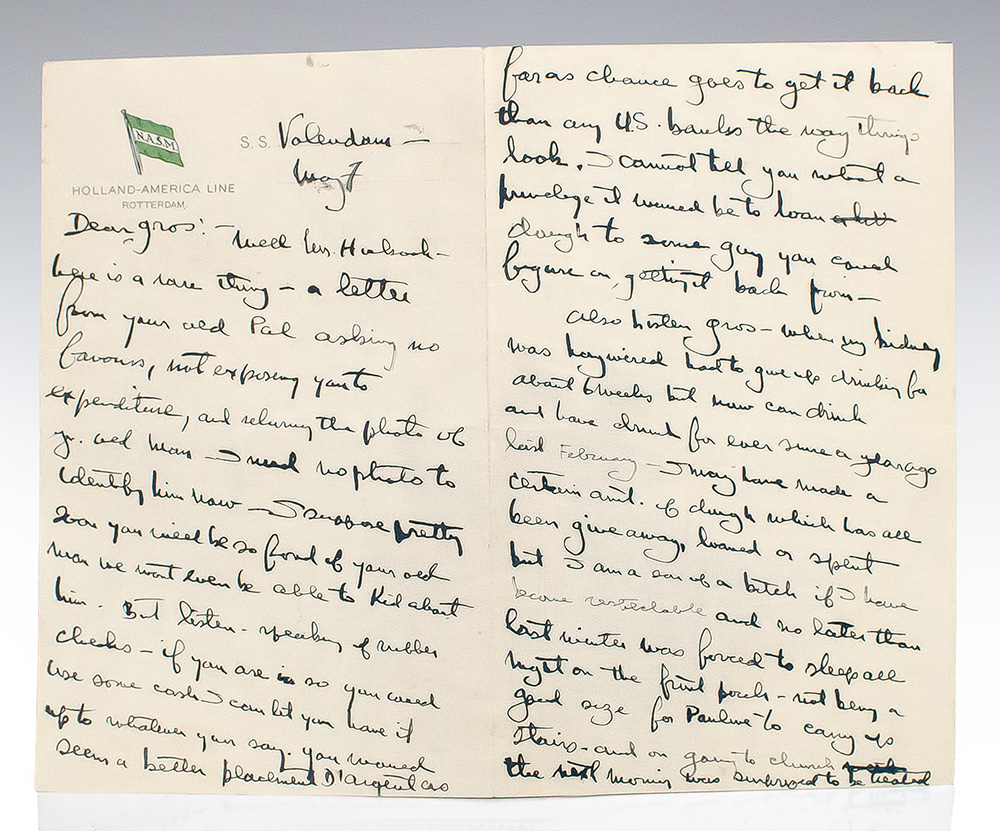 N.A.S.M.
HOLLAND-AMERICA LINE
ROTTERDAM.
S.S. Volendam —
May 7
Dear gros: —
here is a rare thing — a letter
from your old Pal asking no
favours, not exposing you to
expenditure, and returning the photo of
yr. old man — I need no photo to
identify him now — I suppose pretty
soon you will be so fond of your old
man we wont even be able to Kid about
him. But listen — speaking of rubber
checks — if you are in so you could
use some cash I can let you have it
up to whatever you say. You would
seem a better placement D'argent as
far as chance goes to get it back
than any U.S. banks the way things
look. I cannot tell you what a
privelege it would be to loan
dough to some guy you could
figure on getting it back from —
also listen gros — when my kidney
was haywired had to give up drinking for
about 6 weeks but now can drink
and have drunk for ever since a year ago
last February — I may have made a
certain amt. of dough which has all
been give away, loaned or spent
but I am a son of a bitch if I have
become respectable and no later than
last winter was forced to sleep all
night on the front porch — not being a
good size for Pauline to carry up
stairs — and on going to church
the next morning was surprized to be treated